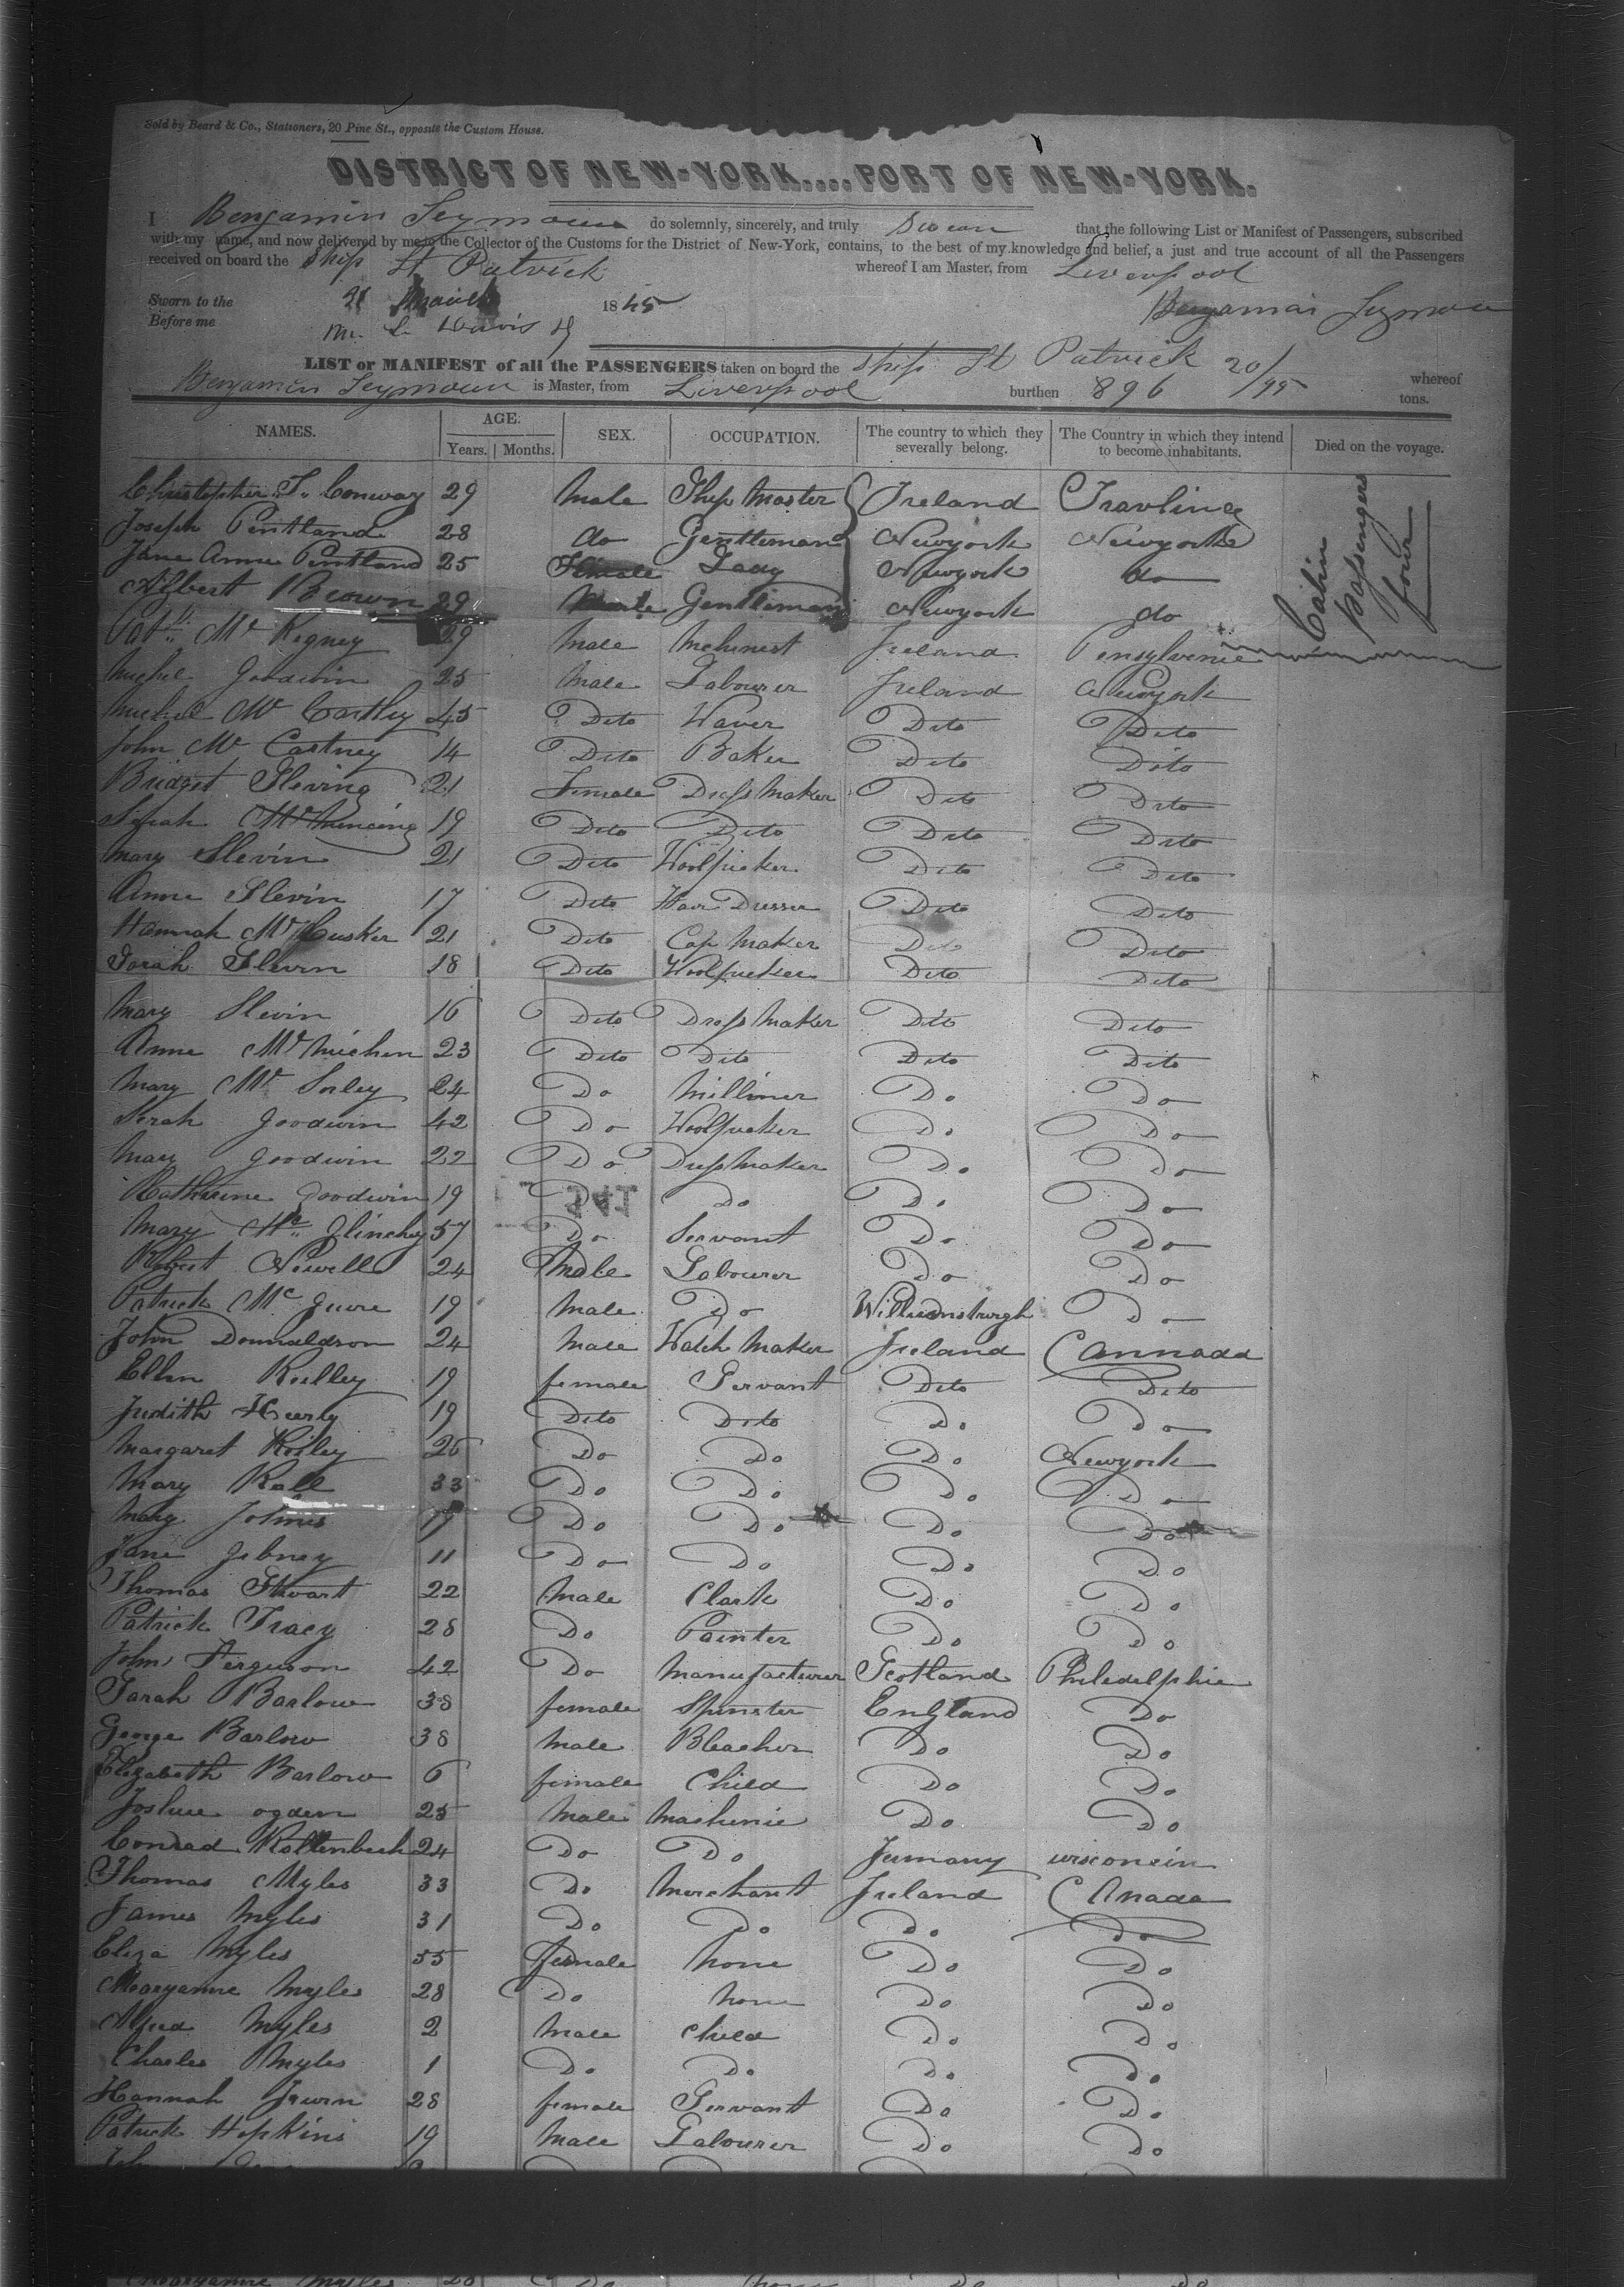 Sold by Beard & Co., Stationers, 20 Pine St., opposite the Custom House.
DISTRICT OF NEW-YORK....PORT OF NEW-YORK.
I Benjamin Seymour do solemnly, sincerely, and truly Swear that the following List or Manifest of Passengers, subscribed
with my name, and now delivered by me to the Collector of the Customs for the District of New-York, contains, to the best of my knowledge and belief, a just and true account of all the Passengers
received on board the Ship St Patrick whereof I am Master, from Liverpool
Sworn to the 21 March 1845 Benjamin Seymour
Before me
LIST or MANIFEST of all the PASSENGERS taken on board the Ship St Patrick whereof
Benjamin Seymour is Master, from Liverpool burthen 896 20/95 tons.
NAMES. AGE. Years. Months. SEX. OCCUPATION. The country to which they severally belong. The Country in which they intend to become inhabitants. Died on the voyage.
Christopher T. Conway 29 Male Ship Master Ireland Travling
Joseph Pentland 28 do Gentleman Newyork Newyork
Jane Anne Pentland 25 Female Lady Newyork do
Albert Brown 29 Male Gentleman Newyork do
Cabin Passengers four
Patk Mc Kegney 29 Male Mchinest Ireland Pensylvenie
Michel Goodwin 25 Male Labourer Ireland Newyork
Michel Mc Carthy 45 Dito Waver Dito Dito
John Mc Cartney 14 Dito Baker Dito Dito
Bridget Sleving 21 Female Dress Maker Dito Dito
Serah 19 Dito Dito Dito Dito
Mary Slevin 21 Dito Woolpicker Dito Dito
Anne Slevin 17 Dito Hair Dresser Dito Dito
Hannah McCusker 21 Dito Cap Maker Dito Dito
Sarah Slevin 18 Dito Woolpicker Dito Dito
Mary Slevin 16 Dito Dress Maker Dito Dito
Anne 23 Dito Dito Dito Dito
Mary Mc Sorley 24 Do Milliner Do Do
Serah Goodwin 42 Do Woolpicker Do Do
Mary Goodwin 22 Do Dress Maker Do Do
Katherine Goodwin 19 Do Do Do Do
Mary Mc Glinchy 57 Do Servant Do Do
24 Male Labourer Do Do
Patrick Mc Guire 19 Male Do Williamsburgh Do
John Donnaldson 24 Male Watch Maker Ireland Cannada
Ellen Reilley 19 female Servant Dito Dito
Judith 19 Dito Dito Do Do
Margaret Reiley 26 Do Do Do Newyork
Mary 33 Do Do Do Do
Mary Holmes 19 Do Do Do Do
Jane Gibney 11 Do Do Do Do
Thomas Stuart 22 Male Clark Do Do
Patrick Tracy 28 Do Painter Do Do
John Ferguson 42 Do Manufacturer Scotland Philedelphie
Sarah Barlow 38 female Spinster England Do
George Barlow 38 Male Bleacher Do Do
Elizabeth Barlow 6 female Child Do Do
Joshue ogden 25 Male Mashenie Do Do
Conrad Kaltenbech 24 Do Do Jumany wisconsin
Thomas Myles 33 Do Merchant Ireland Canada
James Myles 31 Do Do Do Do
Eliza Myles 55 female None Do Do
Maryanne Myles 28 Do None Do Do
Alfred Myles 2 Male Child Do Do
Charles Myles 1 Do Do Do Do
Hannah Irwin 28 female Servant Do Do
Patrick Hopkins 19 Male Labourer Do Do